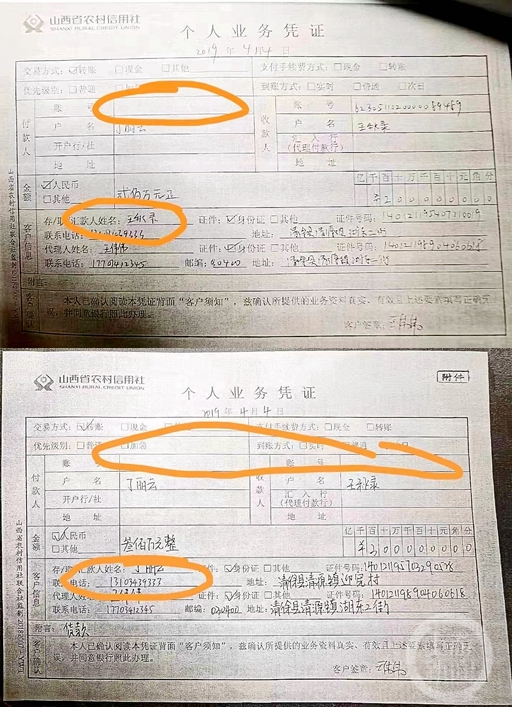 山西省农村信用社
SHANXI RURAL CREDIT UNION
个人业务凭证
2019年4月4日
交易方式: ☑转账 □现金 □其他 支付手续费方式: □现金 □转账
优先级别: □普通 到账方式: □实时 □普通 □次日
付款人 账号 收款人 账号
户名 丁丽云 户名 王秋录
开户行/社 汇入行(代理付款行)
地址 地址
金额 ☑人民币 □其他 贰佰万元正 亿千百十万千百十元角分
¥200000000
客户信息 存/取/汇款人姓名: 王秋录 证件: ☑身份证 □其他 证件号码:
联系电话: 地址: 清徐县清源镇湖东二街
代理人姓名: 王伟伟 证件: ☑身份证 □其他 证件号码:
联系电话: 17703412345 邮编: 030400 地址: 清徐县清源镇湖东二街
附言:
客户确认 本人已确认阅读本凭证背面“客户须知”,兹确认所提供的业务资料真实、有效且上述要素填写正确无误,并同意银行照此办理。
客户签章:
山西省农村信用社联合社监制
山西省农村信用社
SHANXI RURAL CREDIT UNION
附件
个人业务凭证
2019年4月4日
交易方式: ☑转账 □现金 □其他 支付手续费方式: □现金 □转账
优先级别: □普通 □加急 到账方式: □实时 □普通
付款人 账号 收款人 账号
户名 丁丽云 户名 王秋录
开户行/社 汇入行(代理付款行)
地址 地址
金额 ☑人民币 □其他 叁佰万元整 亿千百十万千百十元角分
¥300000000
客户信息 存/取/汇款人姓名: 丁丽云 证件: ☑身份证 □其他 证件号码:
联系电话: 13103439333 地址: 清徐县清源镇迎宪村
代理人姓名: 证件: ☑身份证 □其他 证件号码: 140121198904060618
联系电话: 17703412345 邮编: 030400 地址: 清徐县清源镇湖东二街
附言: 货款
客户确认 本人已确认阅读本凭证背面“客户须知”,兹确认所提供的业务资料真实、有效且上述要素填写正确无误,并同意银行照此办理。
客户签章:
山西省农村信用社联合社监制